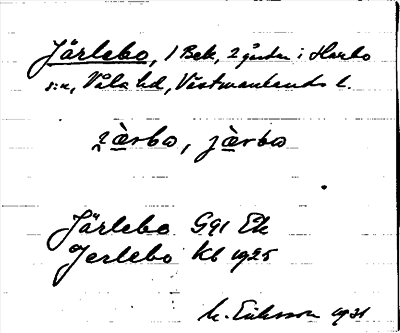 Järlebo, 1 Bek, 2 gårdar i Harbo
s:n, Våla hd, Västmanlands l.
järbo, järbo
Järlebo G91 Ek
Jerlebo Kb 1925
M. Eriksson 1931